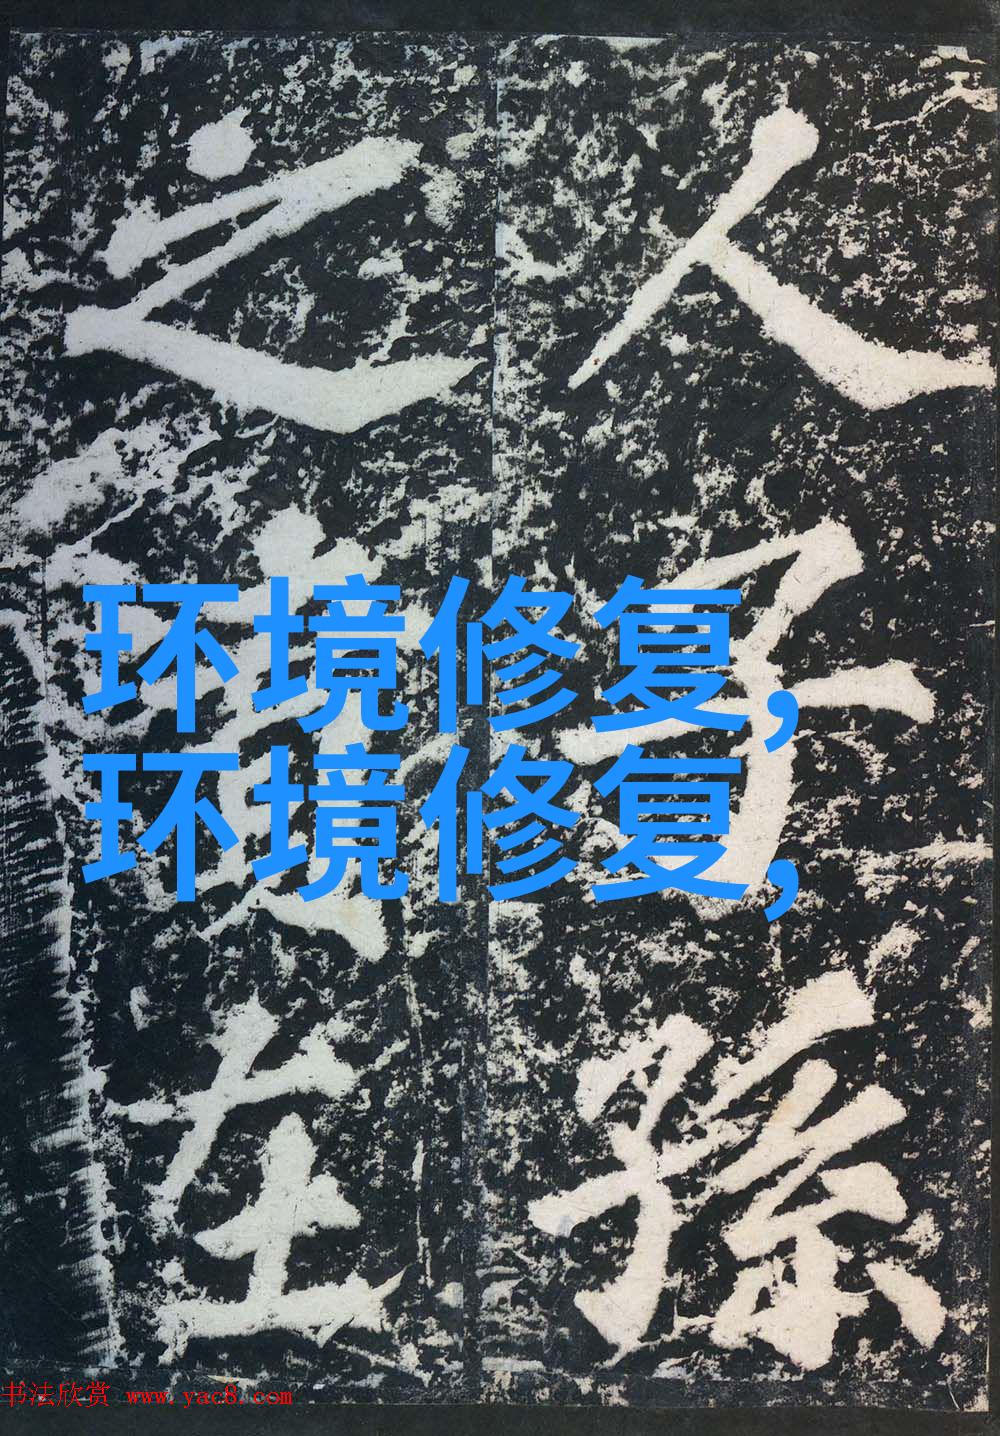 人子孫
之在
环境修复,
环境修复,
书法欣赏 www.yac8.com